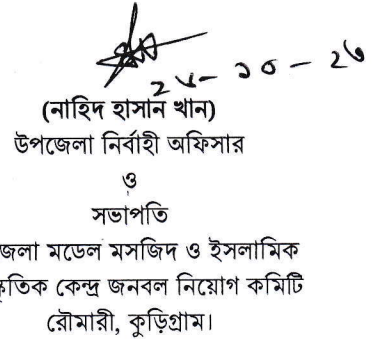 ২৮-১০-২৫
(নাহিদ হাসান খান)
উপজেলা নির্বাহী অফিসার
ও
সভাপতি
জেলা মডেল মসজিদ ও ইসলামিক
কৃতিক কেন্দ্র জনবল নিয়োগ কমিটি
রৌমারী, কুড়িগ্রাম।